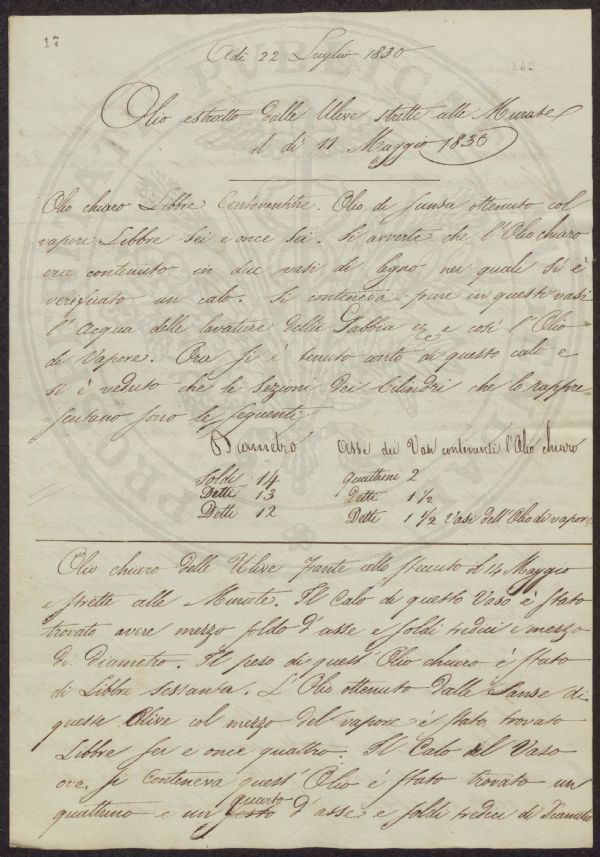 17
Adi 22 Luglio 1830
162
Olio estratto dalle Ulive strette alle Murate
il di 11 Maggio 1830
Olio chiaro Libbre Centoventitre. Olio di sansa ottenuto col
vapore Libbre sei e once sei. Si avverte che l'Olio chiaro
era contenuto in due vasi di legno nei quali si è
verificato un calo. Si conteneva pure in questi vasi
l'Acqua delle lavature della Gabbia &c e così l'Olio
di Vapore. Ora si è tenuto conto di questo calo e
si è veduto che le sezioni dei Cilindri che lo rappre-
=sentano sono le seguenti
Diametro Asse dei Vasi contenenti l'Olio chiaro
Soldi 14 quattrini 2
Detti 13 Detti 1 1/2
Detti 12 Detti 1 1/2 Vasi dell'Olio di vapore
Olio chiaro delle Ulive frante collo Stento il 14 Maggio
e strette alle Murate. Il Calo di questo Vaso è stato
trovato avere mezzo soldo d'asse e soldi tredici e mezzo
di diametro. Il peso di quest'Olio chiaro è stato
di Libbre sessanta. L'Olio ottenuto dalle Sanse di
queste Olive col mezzo del vapore è stato trovato
Libbre sei e once quattro. Il Calo del Vaso
ove si conteneva quest'Olio è stato trovato un
quarto
quattrino e un sesto d'asse e soldi tredici di Diametro